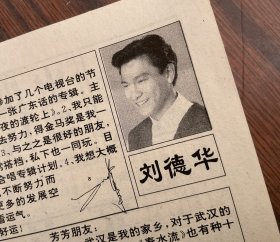 参加了几个电视台的节
一张广东话的专辑。主
夜的渡轮上》。2、我只能
去努力，得金马奖是我一
3、与之之是很好的朋友，
搭档，私下也一同玩。目
合唱专辑计划。4、我想大概
不断努力而
更多的发展空
着运气。
好运！
刘德华
芳芳朋友：
武汉是我的家乡，对于武汉的
春水流》也有种十